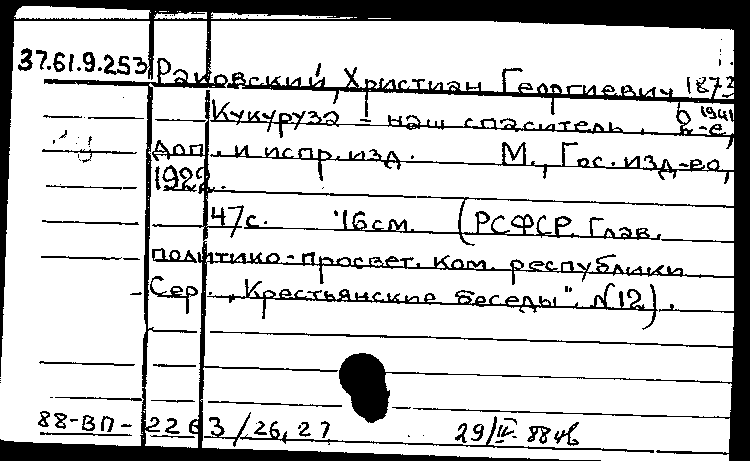 37.61.9.253 Раковский, Христиан Георгиевич, 1873
1941
Кукуруза – наш спаситель. 2-е,
доп. и испр. изд. М., Гос. изд-во,
1922.
47 с. 16 см. (РСФСР. Глав.
политико-просвет. ком. республики
Сер. "Крестьянские беседы", N 12).
88-ВП-2263/26,27 29/IV-88